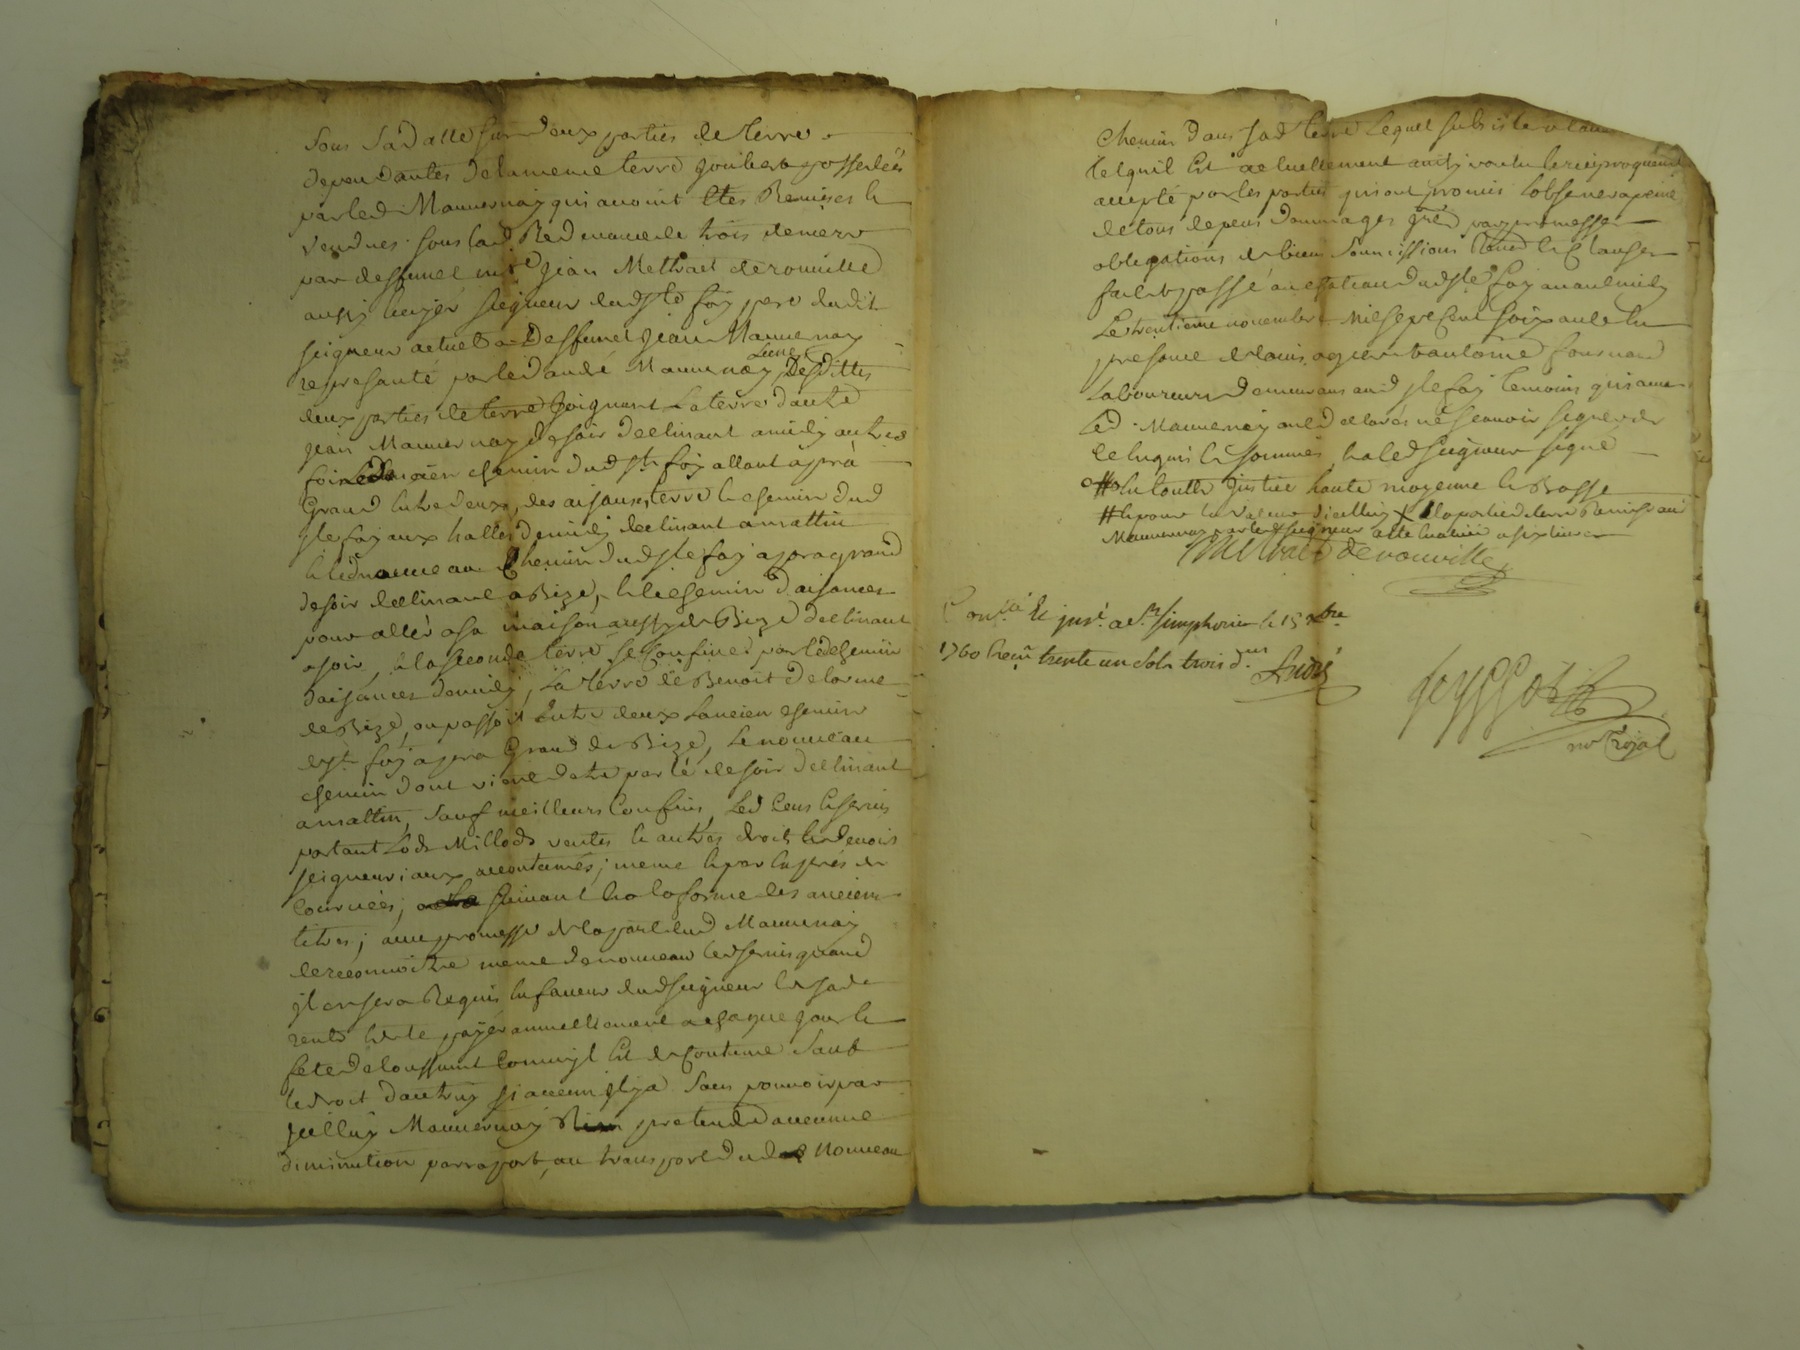 Sous Sad datte sur deux parties de terre
dependantes de la meme terre joubert possedées
par led Mauvernay qui avoint etes Remises et
vendues sous lad Redevance de trois deniers
par deffunct mre jean Methait de rouville
aussy heuyer seigneur dud ste foy pere dudit
seigneur actuel a deffunct jean Mauvernay
represanté par led andré Mauvernay, Desdittes
deux parties de terre joignant La terre d'autre
jean Mauvernay de soir declinant a midy autres
fois ancien chemin dud ste foy allant a pra
Grand entre deux, des aisances, terre le chemin dud
ste foy aux halles de midy declinant a mattin
et led nouveau Chemin dud ste foy a pra grand
de soir declinant a Bize, et le chemin d'aisances
pour aller a sa maison aussy de Bize declinant
a soir, et la seconde terre se Confine par le chemin
d'aisances de midy, La terre de Benoit Delorme
de Bize, ou passoit Entre deux L'ancien chemin
de ste foy a pra Grand de Bize, Le nouveau
chemin dont vient d'etre parlé de soir declinant
a mattin, Sauf meilleurs Confins, Led Cens et servis
portant Lods Millods ventes et autres droits et devoirs
seigneuriaux accoutumés; meme
suivant et a la forme des anciens
titres; avec promesse de la part dud Mauvernay
de reconnoitre meme de nouveau led servis quand
il en sera Requis en faveur dud seigneur et sad
rente et de le payer annuellement a chaque jour et
fete de toussaint Comme il Est de Coutume Sauf
le droit d'autruy si aucun il y a Sans pouvoir par
jcelluy Mauvernay pretendre d'aucune
diminution par raport au transport dud nouveau
Chemin dans sad terre Lequel subsistera
tel quil Est actuellement ainsy voulu et reciproquement
accepté par les parties qui ont promis L'observer a peine
de tous depens dommages par promesses
obligations de biens soumissions Renon et Clauses
fait et passé au chateau dud ste foy avant midy
Le trentieme novembre mil sept Cent soixante En
presence de Louis et antoine fournand
Laboureurs demeurans aud ste foy temoins qui avec
Led Mauvernay ont declarés ne scavoir signer de
ce enquis et sommés, et a led seigneur signé
# En toutte justice haute moyenne et Basse
# et pour la valeur d'icelluy X la partie de terre Remise aud
Mauvernay par led seigneur a été Evaluée a six livres
Methait de rouville
Conllé Et insé. a st. simphorien le 15 xbre
1760 Reçu trente un sols trois drs
André
not Royal